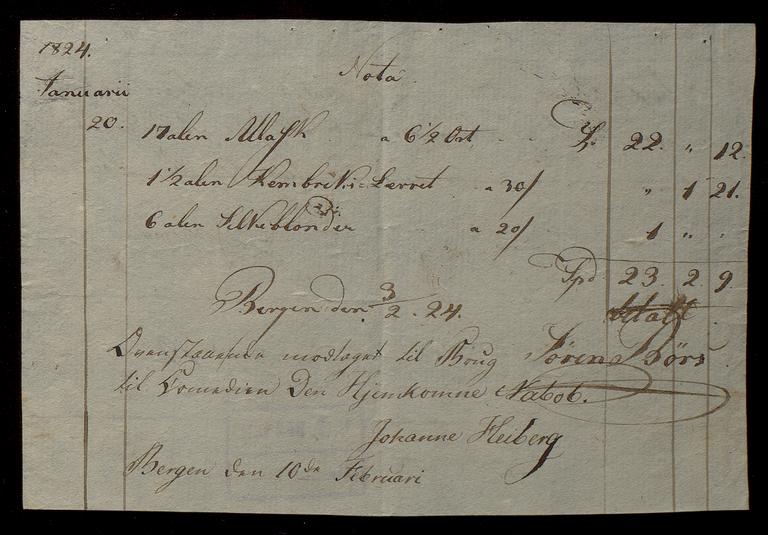 1824.
Nota
Januarii
20. 17 alen Atlask a 6 1/2 Ort 22. " 12.
1 1/2 alen Kembriks-Lærret a 30/ " 1 21.
6 alen Silkeblonder a 20/ 1 " "
Spd 23. 2. 9.
Bergen den 3/2. 24.
Ovenstaaende modtaget til Brug Sören Börs
til Comedien Den Hjemkomne Nabob.
Johanne Heiberg
Bergen den 10de Februari